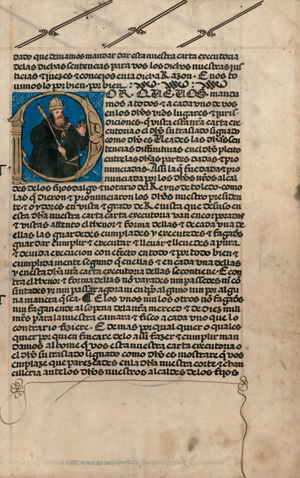 dado que deuiamos mandar dar esta nuestra carta executoria
de las dichas sentencias para vos los dichos nuestras jus
ticias & juezes & concejos en la dicha Razon. E nos to
uimos lo por bien. por
OR QVE VOS manda
mos a todos & a cada vno de vos
en los dhōs vrōs lugares & juri
diciones que vista esta nrā carta exe
cutoria o el dhō su traslado signado
como dhō es veades las dhās sen
tencias diffinitiuas en el dhō pleito
entre las dhās partes dadas & pro
nunciadas. Assi la que fue dada & pro
nunciada por los dhōs nrōs alcal
des delos fijos algo & notario del Reyno de toledo como
las que dieron & pronunciaron los dhōs nuestro presiden
te & oydores en vista & grado de Reuista que de suso en
esta dhā nuestra carta executoria van encorporadas
& vistas al thenor & forma dellas & de cada vna de
ellas las guardedes cumplades y executedes & fagades
guardar cumplir & executar & lleuar & lleuedes a pura
& deuida execucion con efecto en todo & por todo bien &
cumplidamente segund que en ellas & en cada vna dellas
y en esta dhā nrā carta executoria dellas se contiene & con
tra el thenor & forma dellas no vayades nin passedes nin co
sintades yr nin passar agora ni en tpō alguno nin por algu
na manera que sea. E los vnos nin los otros no fagades
nin fagan ende al so pena dela nrā merced & de diez mill
mrs̄ para la nuestra camara & fisco a cada vno que lo
contrario fiziere. E demas por qual quier o quales
quier por quien fincare delo assi fazer & cumplir man
damos al home que vos esta nuestra carta executoria o
el dhō su traslado signado como dhō es mostrare que vos
emplaze que parezcades en la dhā nuestra corte & chan
cilleria ante los dhōs nuestros alcaldes delos fijos